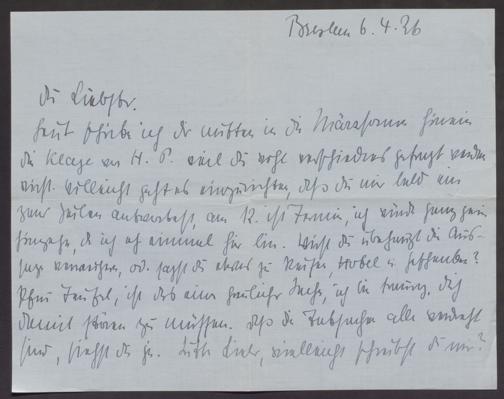 Breslau 6.4.26
du Liebster.
heut schreibe ich dir mitten in die Märzsonne hinein
die Klage von H. P. weil du wohl verschiedenes gefragt werden
wirst. vielleicht geht es einzurichten, daß du mir bald ein
paar Zeilen antwortest, am 12. ist Termin, ich würde ganz gern
hingehn, da ich noch einmal hier bin. Wirst du überhaupt die Aus-
sage verweigern, od. sagst du etwas zu
Pfui Teufel, ist das eine greuliche Sache, ich bin traurig, dich
damit stören zu müssen. daß die Tatsachen alle verdreht
sind, siehst du ja. Lieber, vielleicht schreibst du mir?